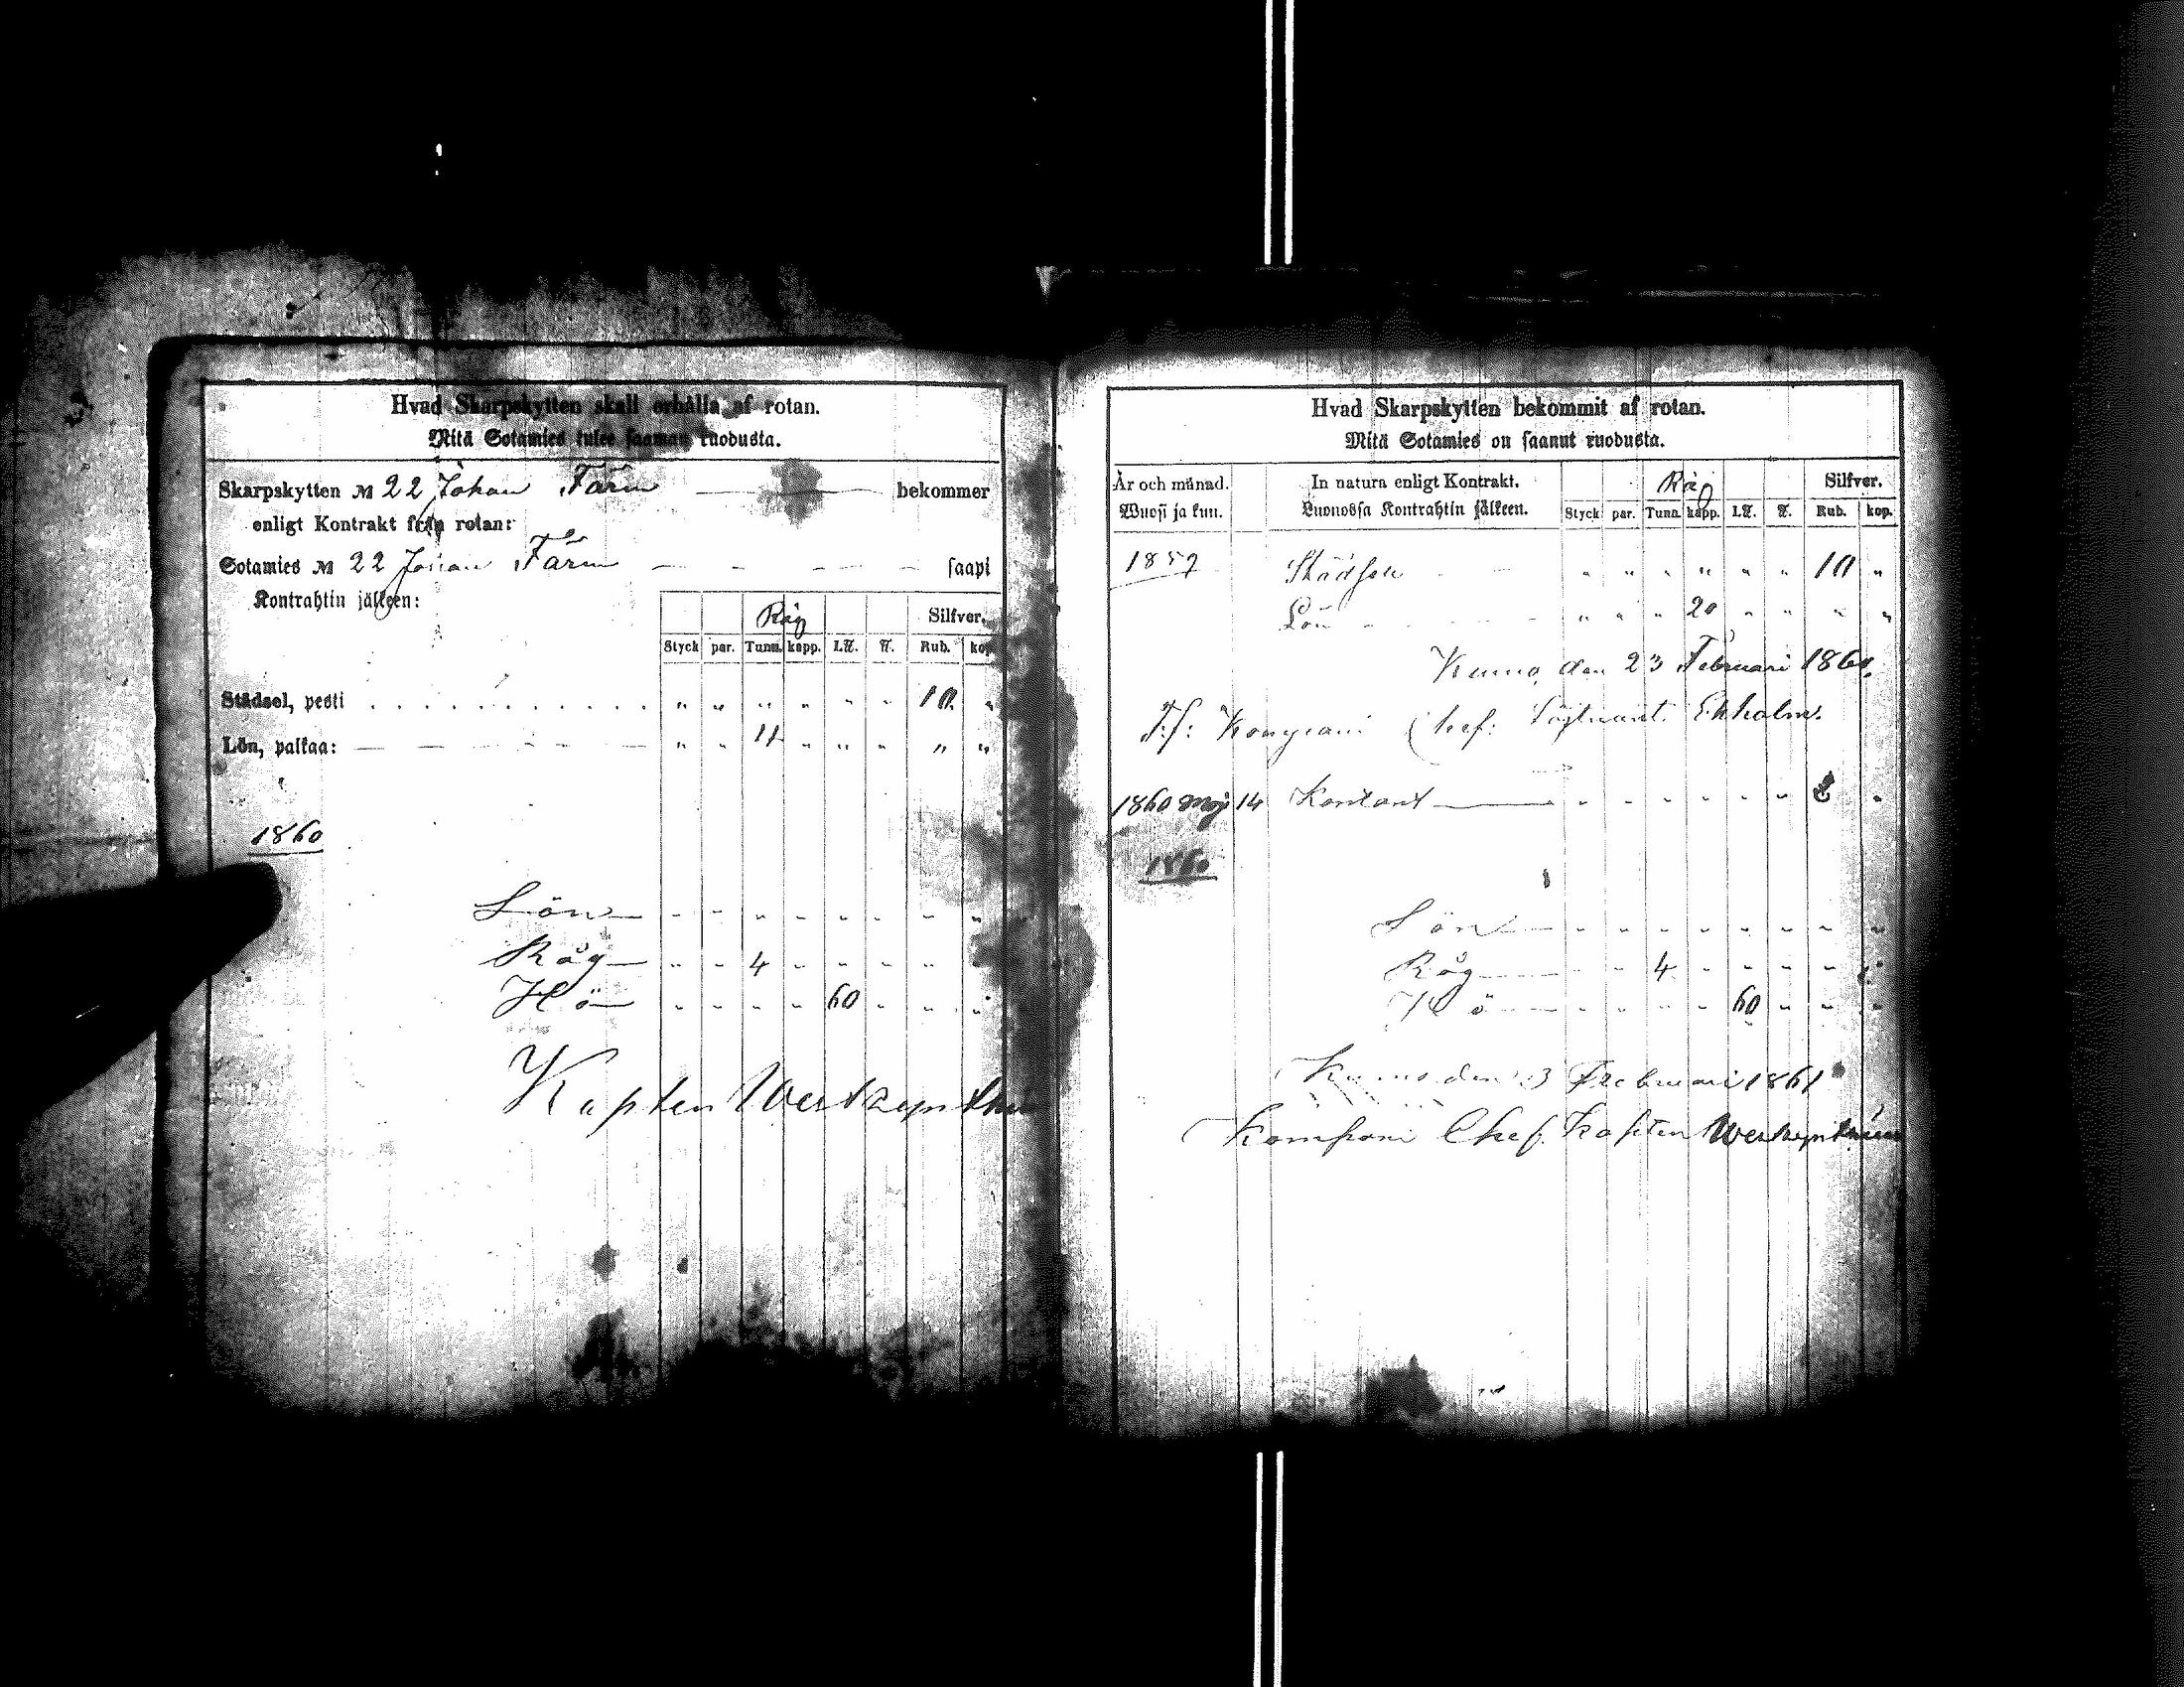 Hvad Skarpskytten skall erhålla af rotan.
Mitä Sotamies tulee saaman ruodusta.
Skarpskytten № 22 Johan Färm bekommer
enligt Kontrakt från rotan:
Sotamies № 22 Johan Färm saapi
Kontrahtin jälkeen:
Råg Silfver.
Styck par. Tunn. kapp. L℔. ℔. Rub. kop.
Städsel, pesti . . . . . . . . . . . . " " " " " " 10 "
Lön, palkaa: " " " " " " "
1860
Lön
Råg 4
Hö 60
Kapten
Hvad Skarpskytten bekommit af rotan.
Mitä Sotamies on saanut ruodusta.
År och månad. In natura enligt Kontrakt. Råg Silfver.
Wuosi ja kuu. Luonossa Kontrahtin jälkeen. Styck par. Tunn. kapp. L℔. ℔. Rub. kop.
1859 Städsel " " " " " " 10 "
Lön " " " 20 " " " "
Kumo den 23 Februari 1860.
T.f: Kompani Chef: Löjtnant Ekholm.
1860 Maj 14 Kontant
1860
Lön
Råg 4
Hö 60
Kumo den 3 Februari 1861
Kompani Chef. Kapten